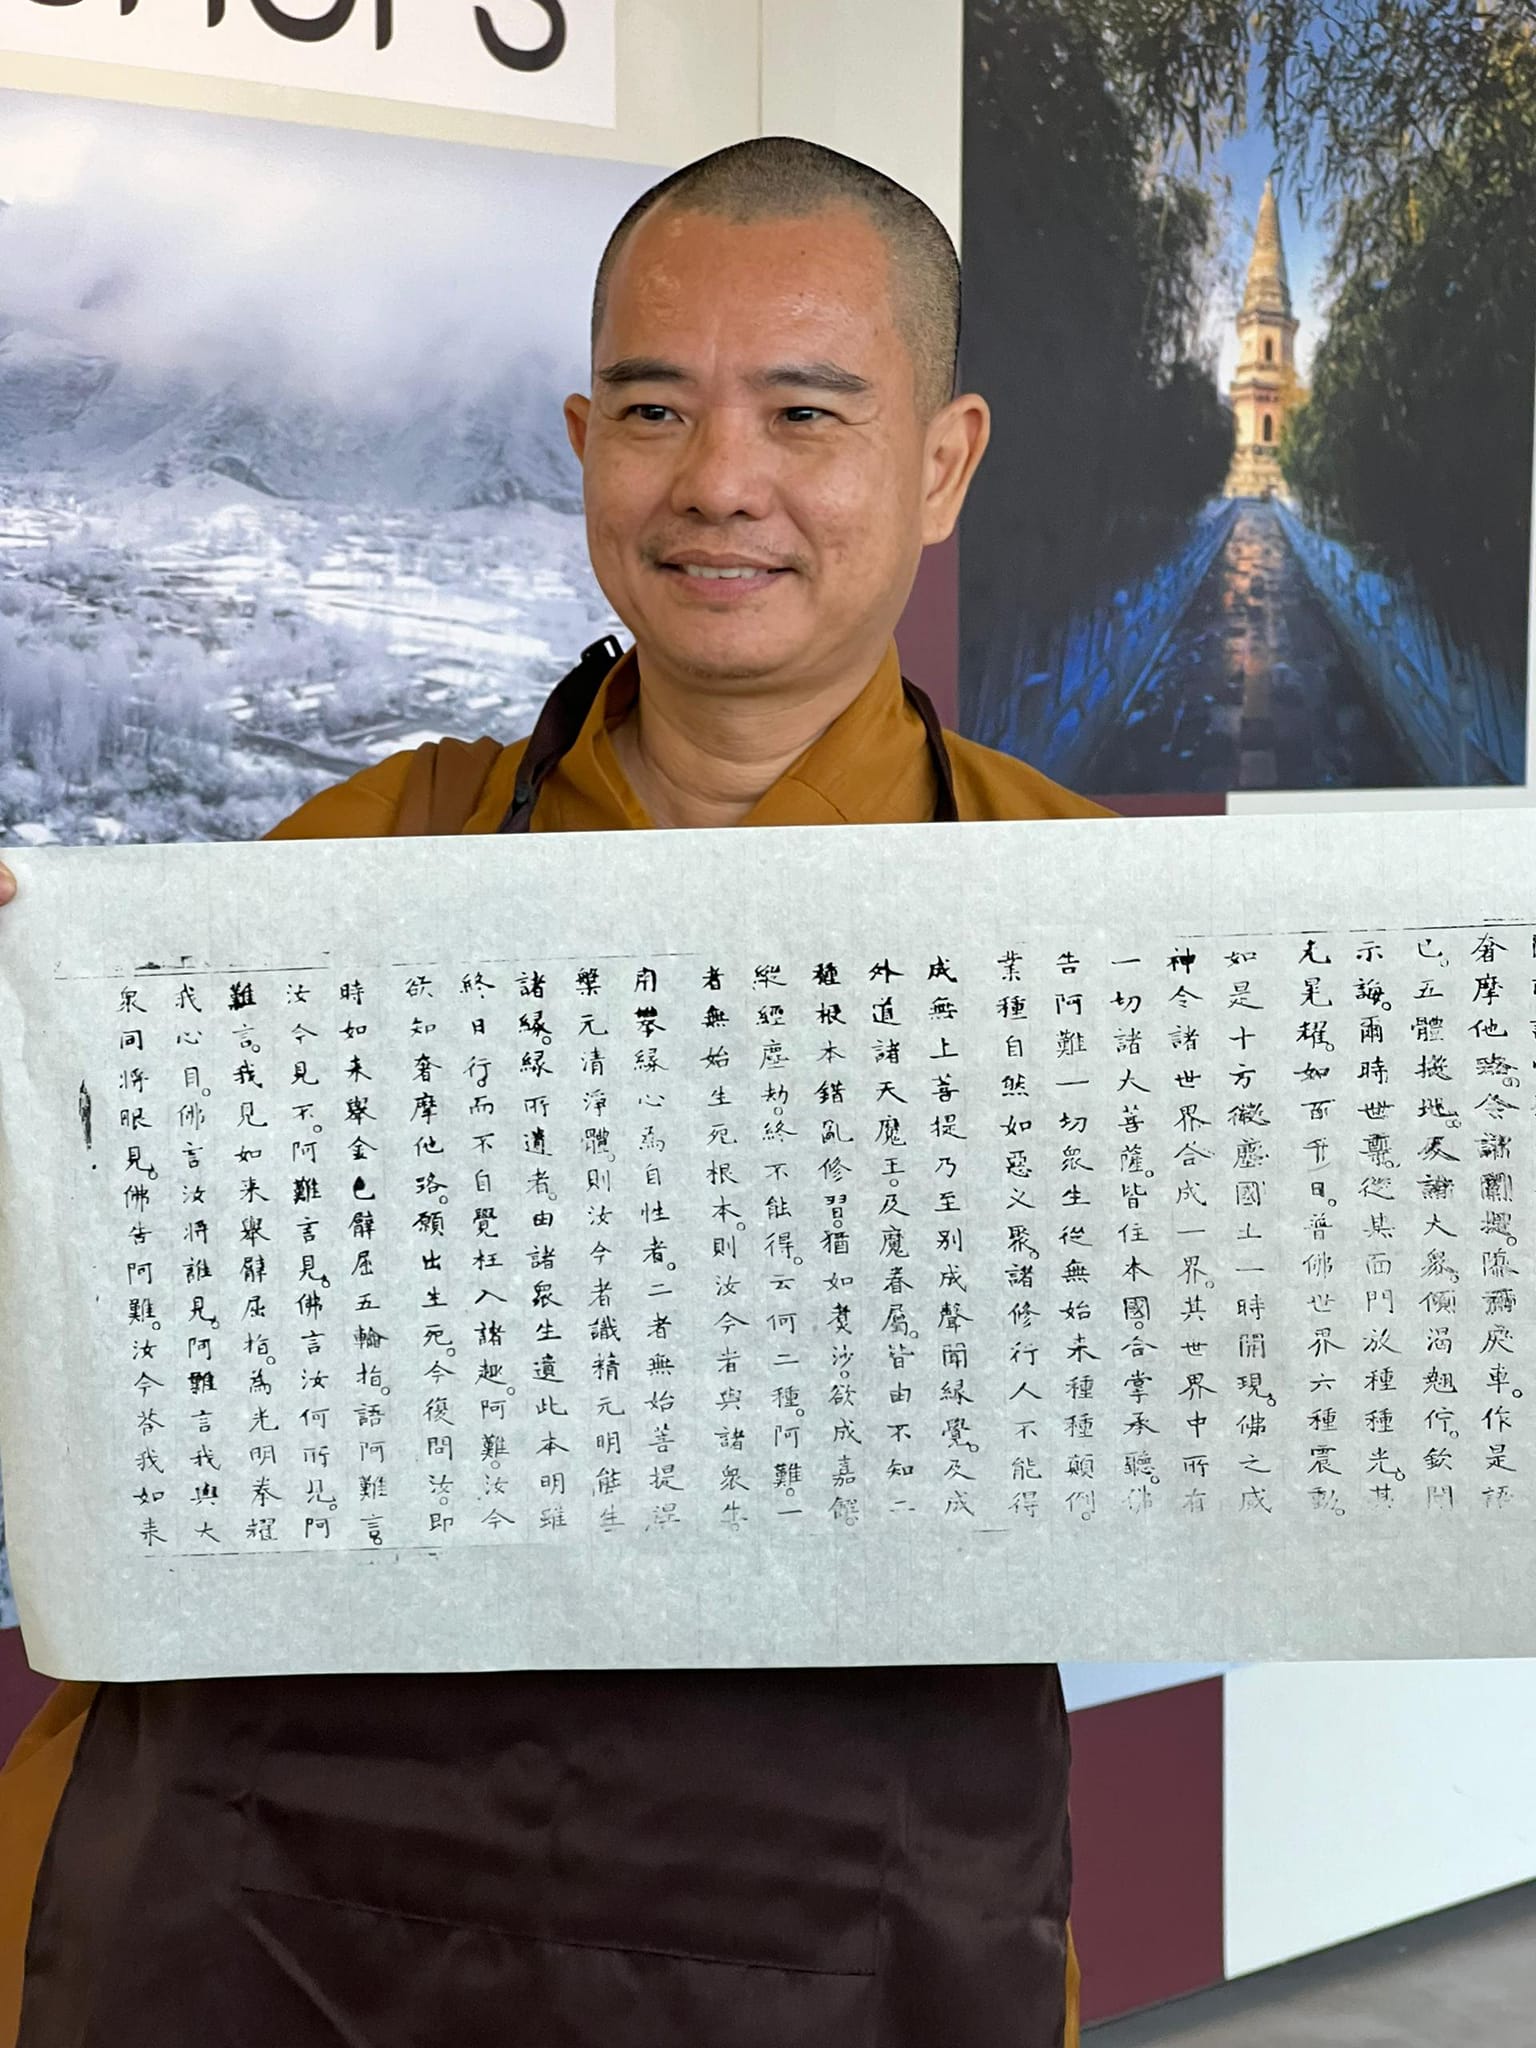 奢摩他路。令諸闡提。隳彌戾車。作是語
已。五體投地。及諸大衆。傾渴翹佇。欽聞
示誨。爾時世尊。從其面門放種種光。其
光晃耀。如百千日。普佛世界六種震動。
如是十方微塵國土一時開現。佛之威
神令諸世界合成一界。其世界中所有
一切諸大菩薩。皆住本國。合掌承聽。佛
告阿難一切衆生從無始来種種顛倒。
業種自然如惡叉聚。諸修行人不能得
成無上菩提乃至別成聲聞緣覺。及成
外道諸天魔王。及魔眷屬。皆由不知二
種根本錯亂修習。猶如煑沙。欲成嘉饌。
縱經塵劫。終不能得。云何二種。阿難。一
者無始生死根本。則汝今者與諸衆生。
用攀緣心為自性者。二者無始菩提涅
槃元清淨體。則汝今者識精元明能生
諸緣。緣所遺者。由諸衆生遺此本明雖
終日行。而不自覺枉入諸趣。阿難。汝今
欲知奢摩他路。願出生死。今復問汝。即
時如来舉金色臂屈五輪指。語阿難言。
汝今見不。阿難言見。佛言汝何所見。阿
難言。我見如来舉臂屈指。為光明拳耀
我心目。佛言汝將誰見。阿難言我與大
衆同將眼見。佛告阿難。汝今荅我如来